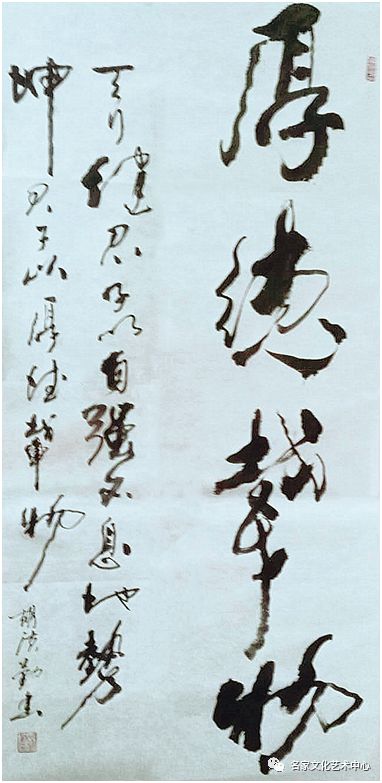 厚德载物
天行健君子以自强不息地势
坤君子以厚德载物
名家文化艺术中心